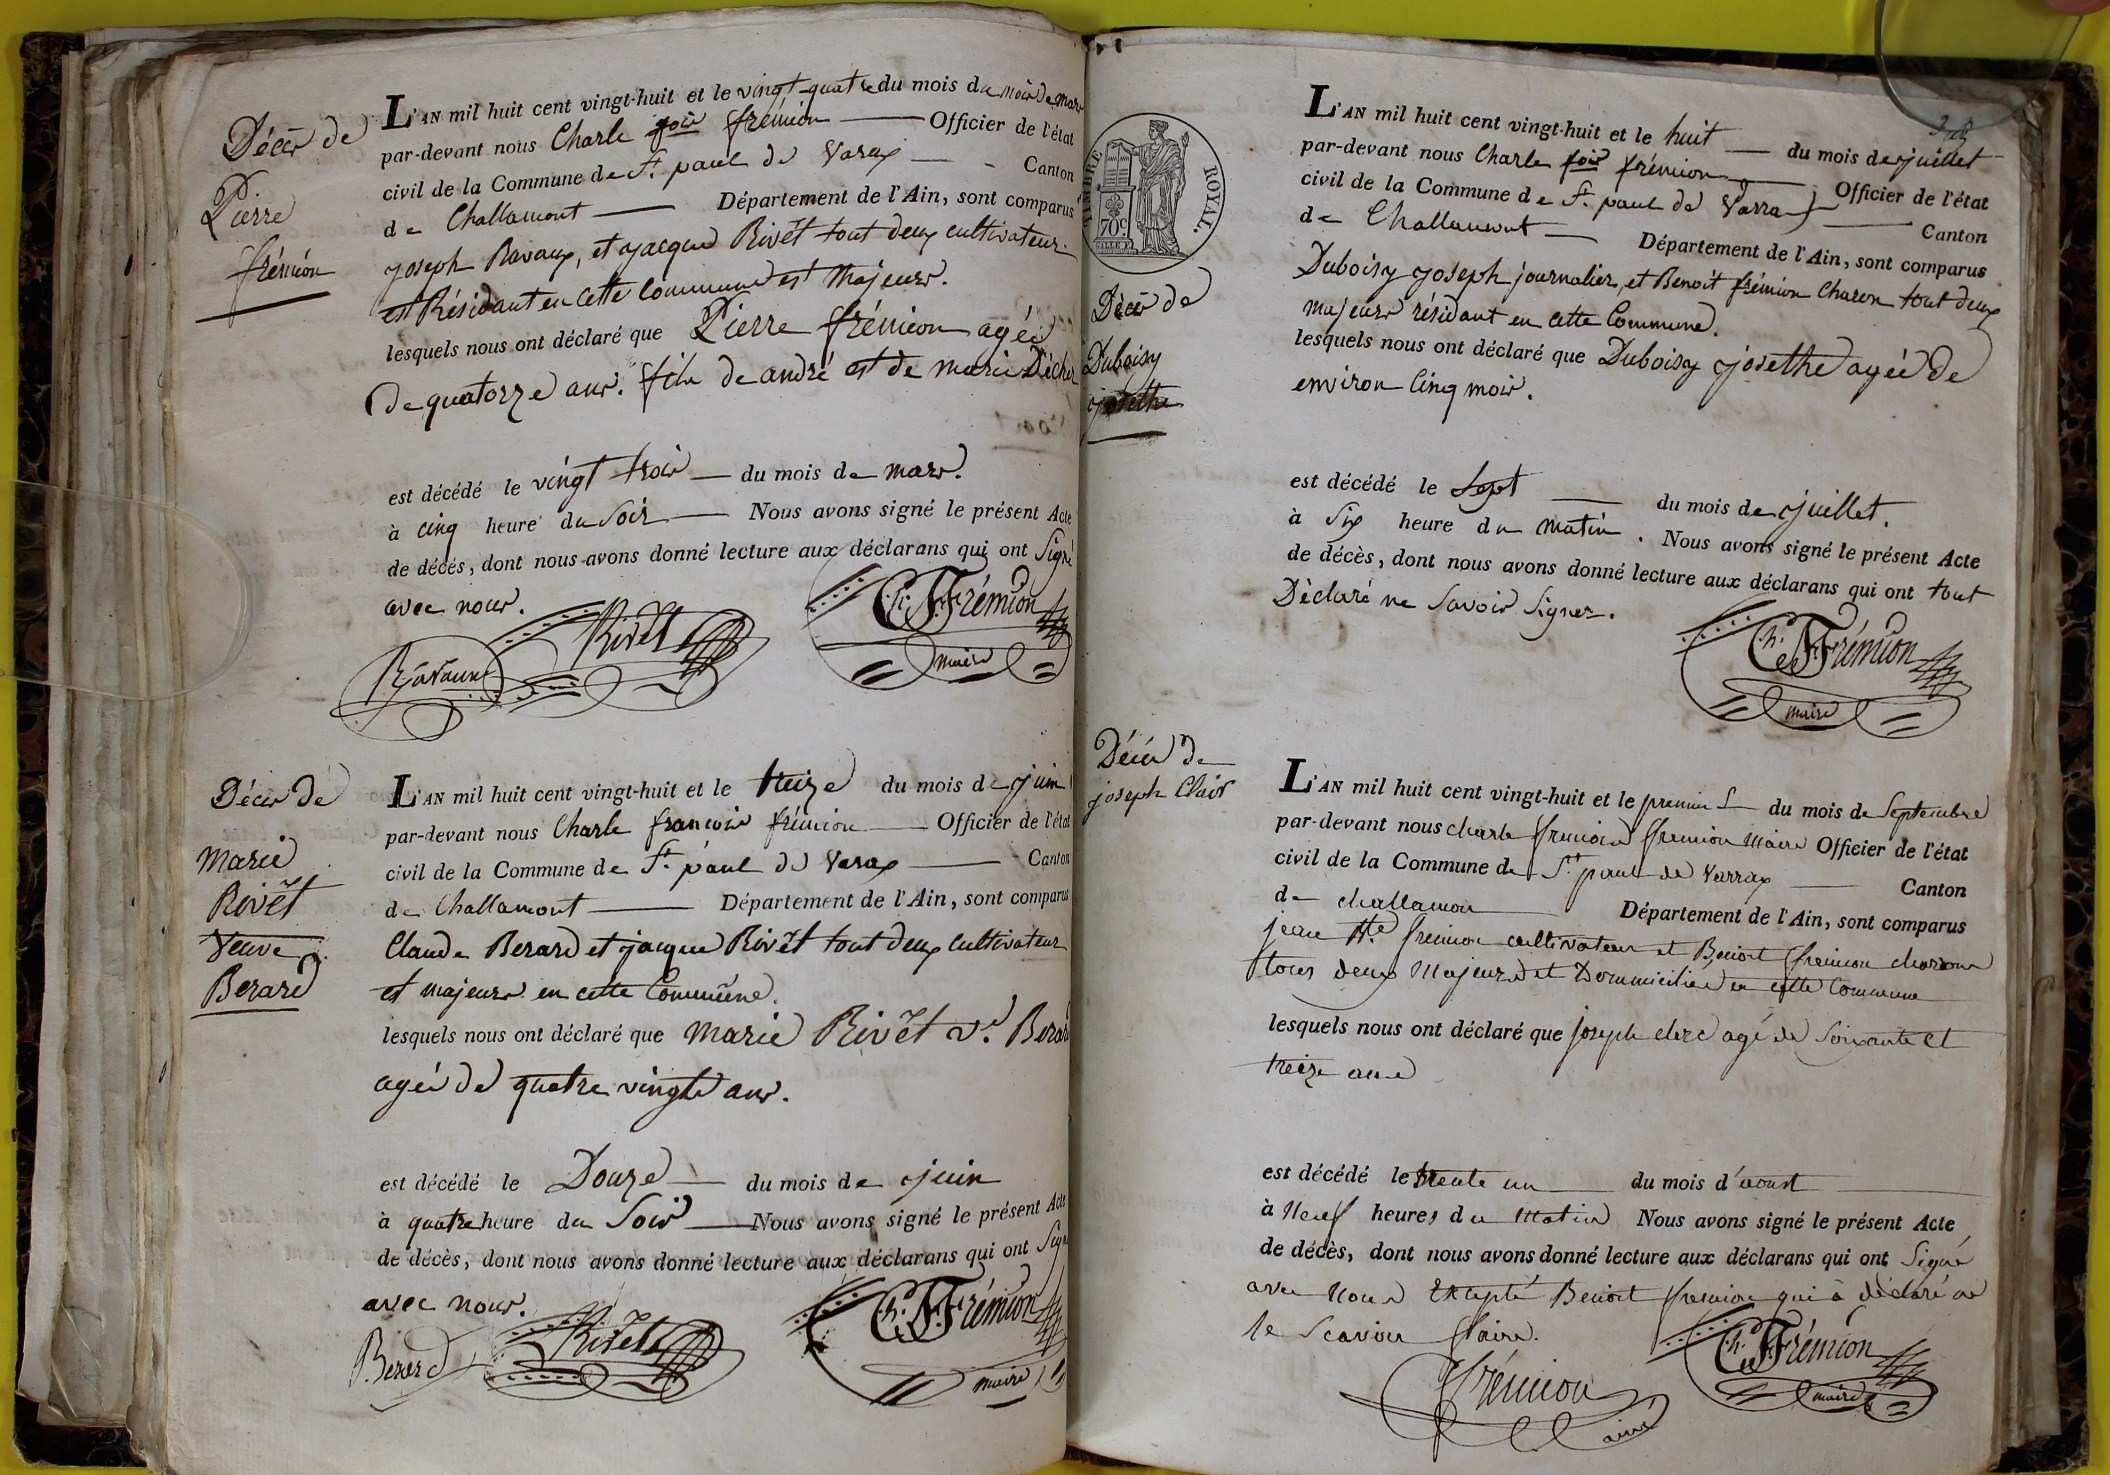 Décès de
Pierre
frémion
L'AN mil huit cent vingt-huit et le vingt-quatre du mois du mois de mars
par-devant nous Charle fois frémion Officier de l'état
civil de la Commune de St. paul de Varax Canton
de Challamont Département de l'Ain, sont comparus
joseph Ravaux, et jacque Rivet tout deux cultivateur
et Résidant en cette Commune et Majeurs.
lesquels nous ont déclaré que Pierre frémion agée
de quatorze ans. fils de andré et de marie
est décédé le vingt trois du mois de mars.
à cinq heure du Soir Nous avons signé le présent Acte
de décès, dont nous avons donné lecture aux déclarans qui ont Signé
avec nous.
Ravaux Rivet Ch. F. Frémion
maire
Décès de
Marie
Rivet
Veuve
Berard
L'AN mil huit cent vingt-huit et le treize du mois de juin
par-devant nous Charle francois frémion Officier de l'état
civil de la Commune de St. paul de Varax Canton
de Challamont Département de l'Ain, sont comparus
Claude Berard et jacque Rivet tout deux cultivateur
et majeurs en cette Commune.
lesquels nous ont déclaré que Marie Rivet ve. Berard
agée de quatre vingts ans.
est décédé le Douze du mois de juin
à quatre heure du Soir Nous avons signé le présent Acte
de décès, dont nous avons donné lecture aux déclarans qui ont Signé
avec nous.
Berard Rivet Ch. F. Frémion
maire
TIMBRE ROYAL.
70c.
Décès de
Duboisy
josethe
L'AN mil huit cent vingt-huit et le huit du mois de juillet
par-devant nous Charle fois frémion Officier de l'état
civil de la Commune de St. paul de Varrax Canton
de Challamont Département de l'Ain, sont comparus
Duboisy joseph journalier, et Benoit frémion Charon tout deux
majeurs résidant en cette Commune.
lesquels nous ont déclaré que Duboisy josethe agée de
environ Cinq mois.
est décédé le Sept du mois de juillet.
à Six heure du matin. Nous avons signé le présent Acte
de décès, dont nous avons donné lecture aux déclarans qui ont tout
Déclaré ne Savoir Signer.
Ch. F. Frémion
maire
Décès de
joseph Clair
L'AN mil huit cent vingt-huit et le premier du mois de Septembre
par-devant nous charle francois fremion Maire Officier de l'état
civil de la Commune de St. paul de Varrax Canton
de challamon Département de l'Ain, sont comparus
jean Bte. fremion cultivateur et Benoit fremion charron
tous deux Majeurs et Dommiciliés en cette Commune
lesquels nous ont déclaré que joseph clerc agé de Soixante et
treize ans
est décédé le trente un du mois d'aoust
à Neuf heures du Matin Nous avons signé le présent Acte
de décès, dont nous avons donné lecture aux déclarans qui ont Signé
avec Nous Excepté Benoit fremion qui à déclaré ne
le Scavoir faire.
frémion ainé Ch. F. Frémion
maire